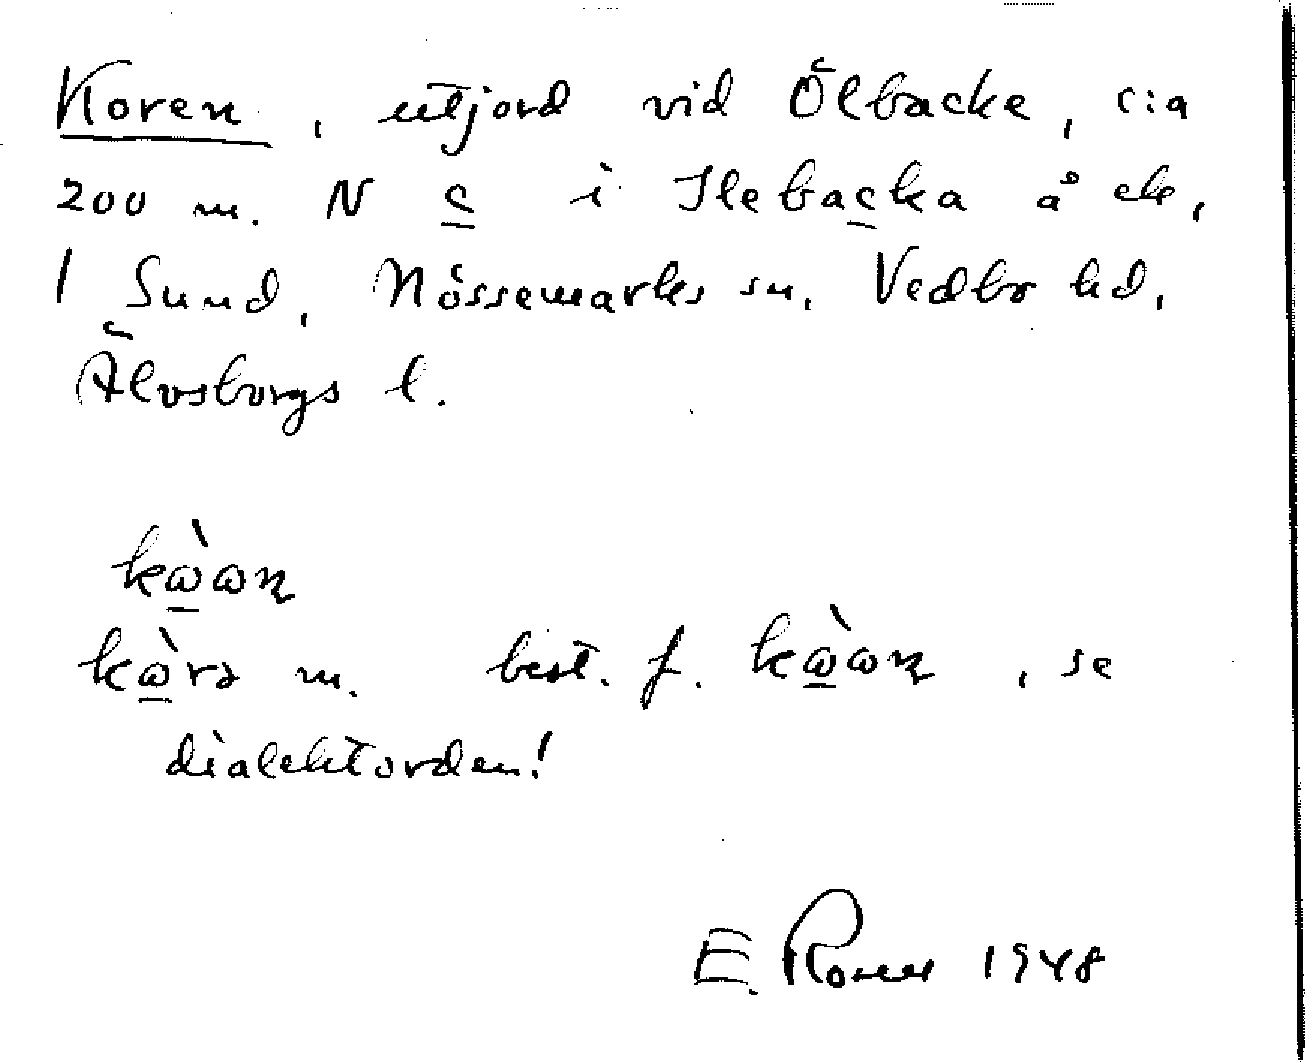 Koren, utjord vid Ölbacke, c:a
200 m. N c i Ilebacka å ek,
1 Sund, Nössemarks sn, Vedbo hd,
Älvsborgs l.
kὼωn
kὼrə m. best. f. kὼωn, se
dialektorden!
E. 1948